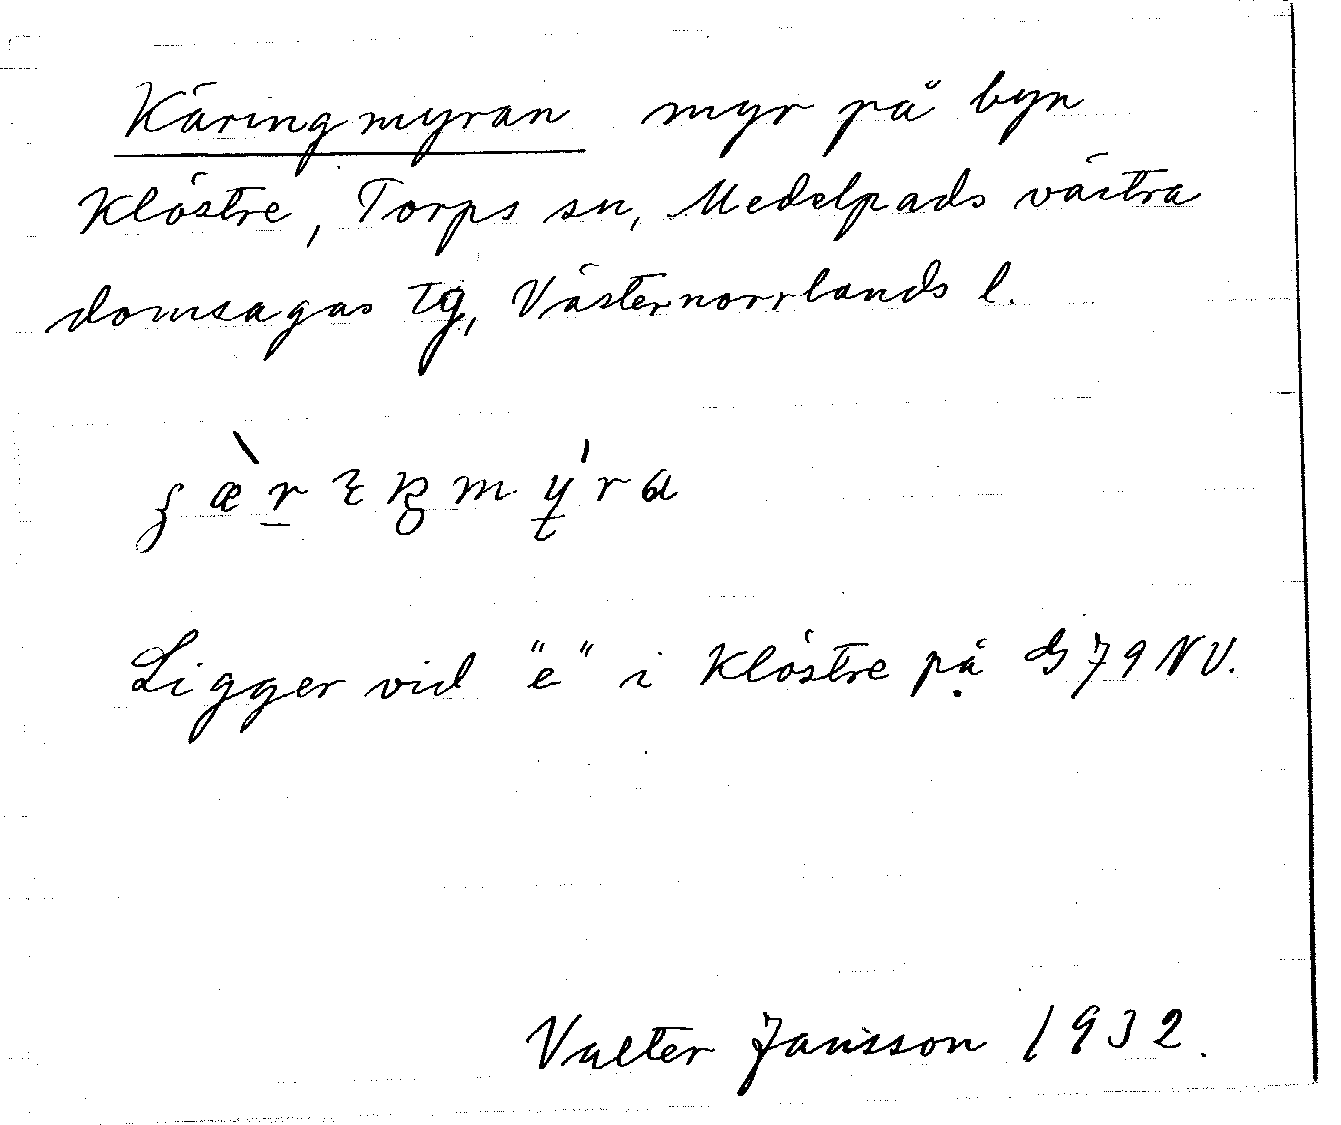 Käringmyran myr på byn
Klöstre, Torps sn, Medelpads västra
domsagas tg, Västernorrlands l.
Ligger vid "e" i Klöstre på G 79 NV.
Valter Jansson 1932.